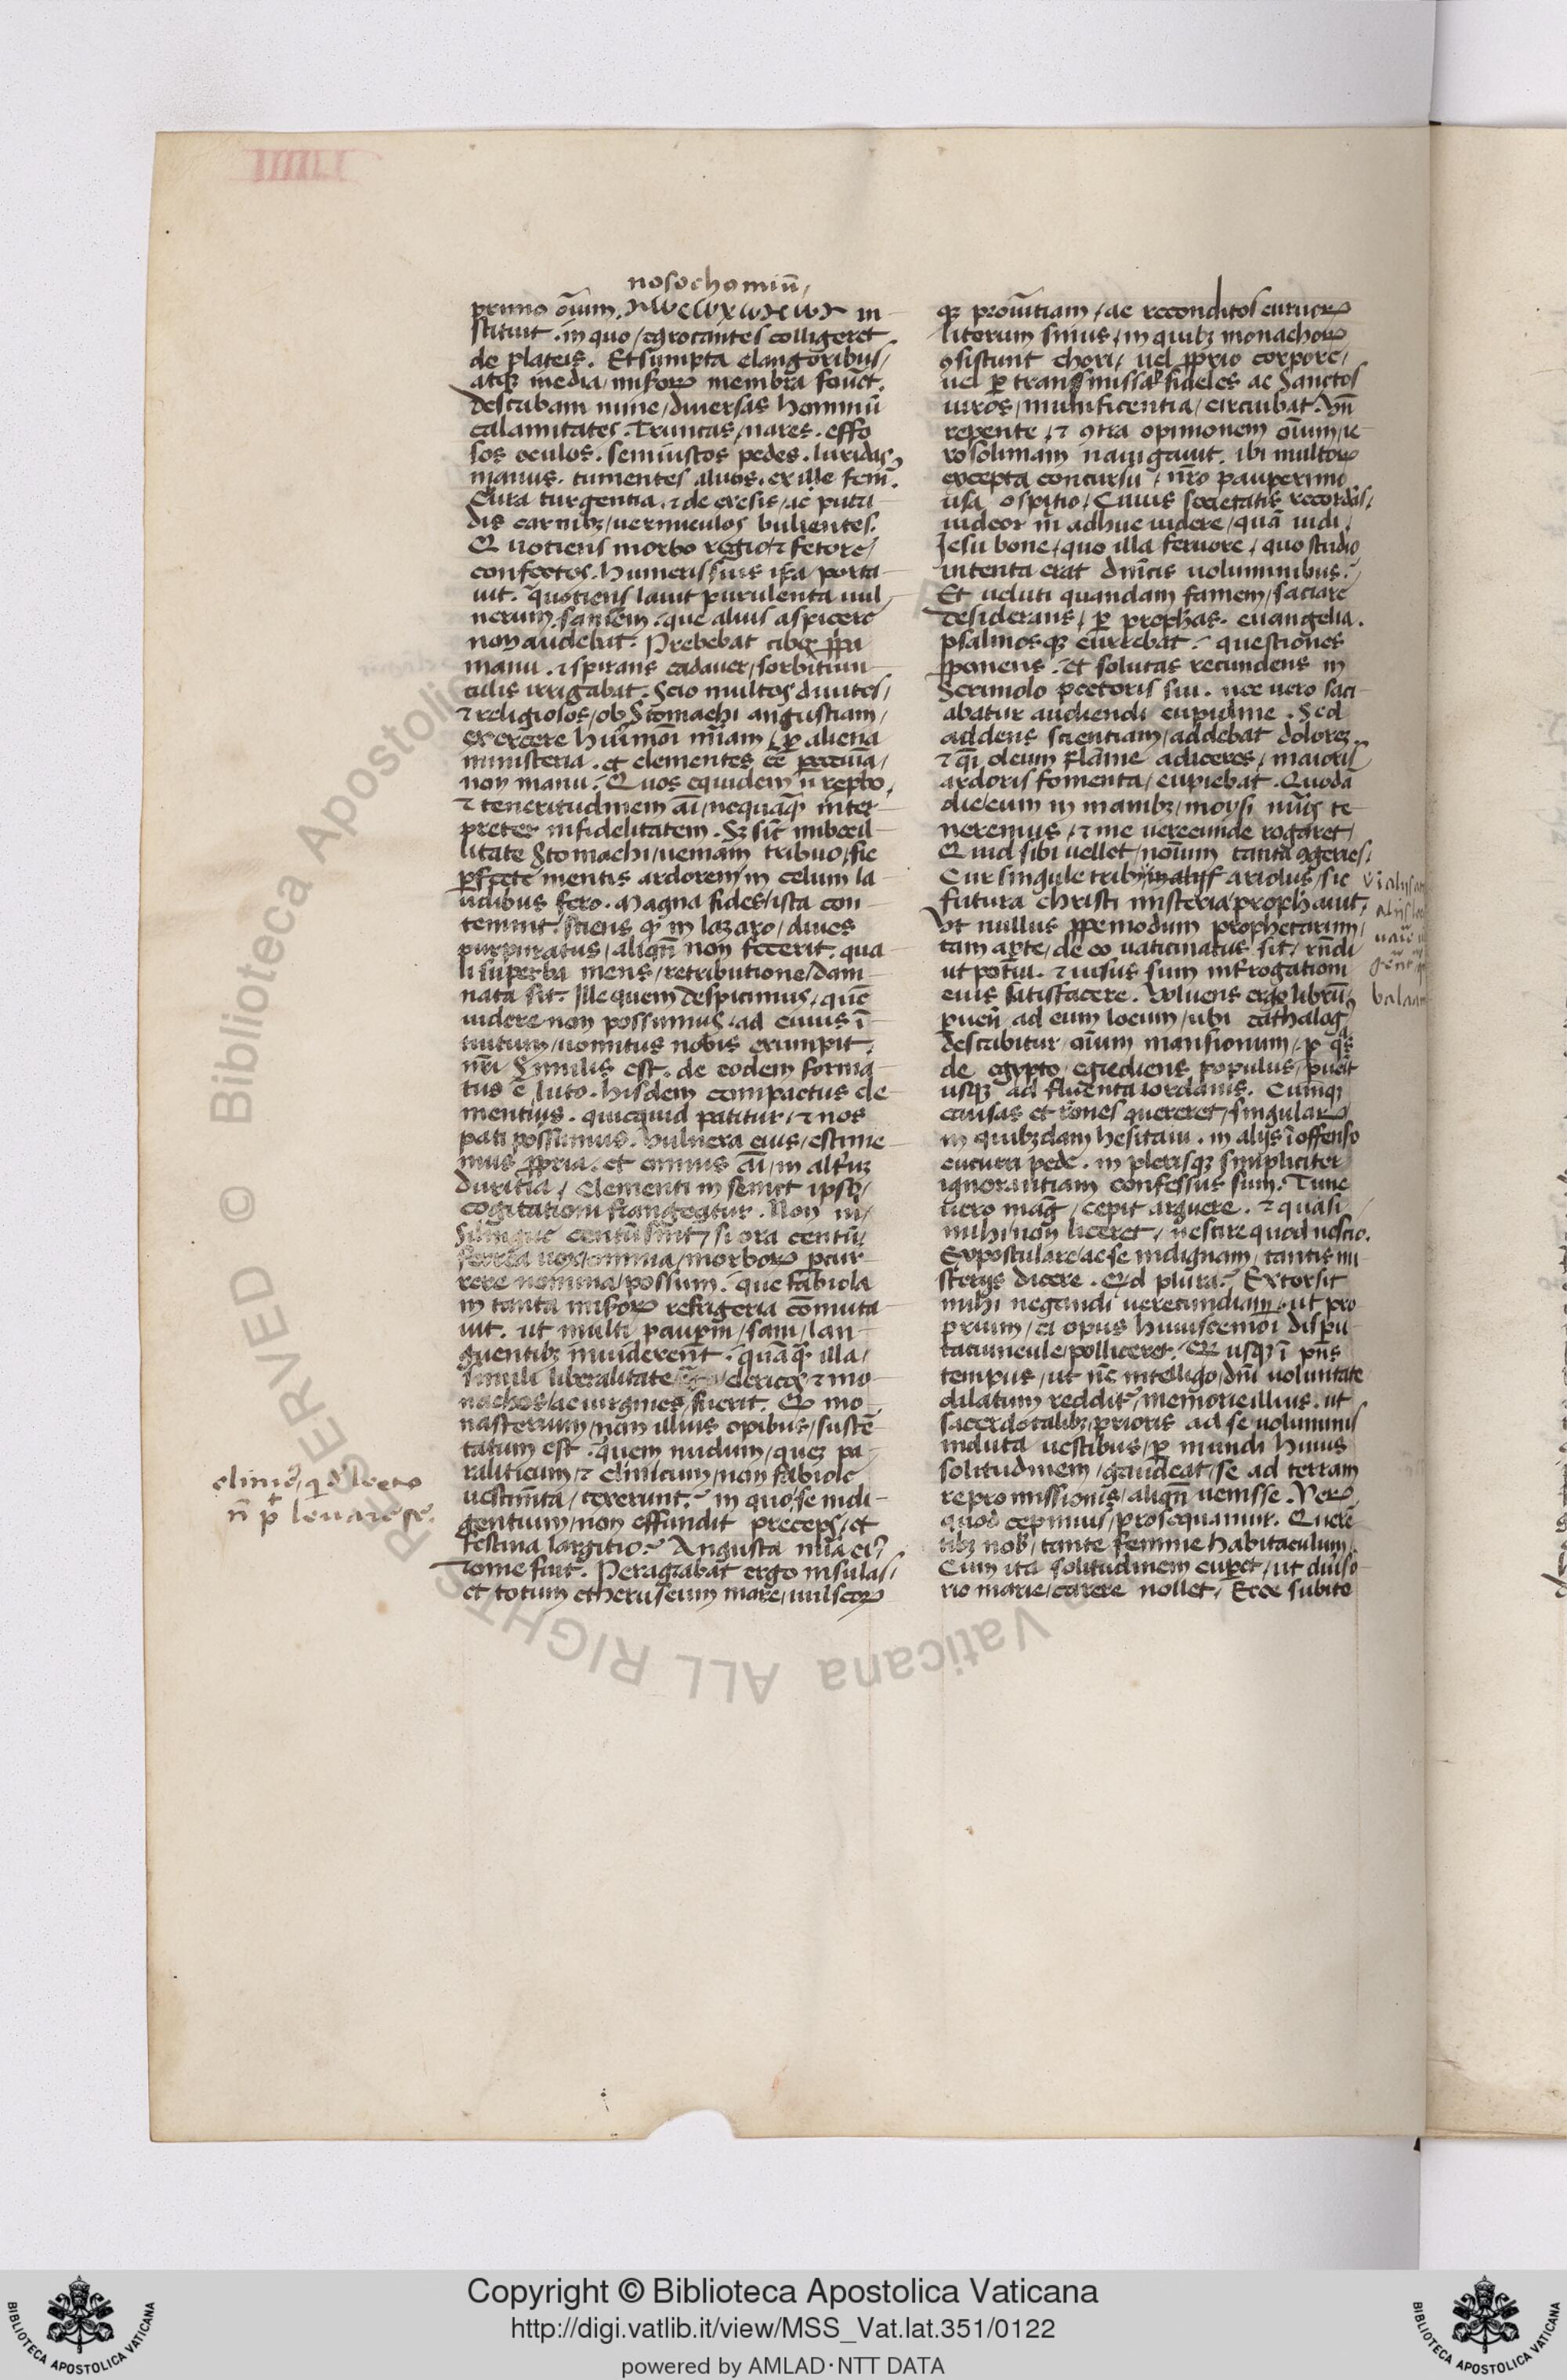 IIIIII
nosochomiū
primo oīum. NWCWXWHWN in-
stituit. in quo / egrotantes colligeret
de plateis. Et sumpta clangoribus /
atqꝫ media / miseroꝝ membra fouet.
describam nunc / diuersas hominū
calamitates. Truncas / nares. effo
sos oculos. semiustos pedes. luridas
manus. tumentes aluos. exille fem̄.
Crura turgentia. ⁊ de exesis / ac putri
dis carnibꝫ / uermiculos bulientes.
Quotiens morbo regio ⁊ fetore /
confectos. humeris suis ip̄a / porta-
uit. quotiens lauit purulenta uul
nerum / saniem. que alius aspicere
non audebat. Prebebat cibos ꝓpria
manu. ⁊ spirans cadauer / sorbitiun-
culis irrigabat. Scio multos diuites /
⁊ religiosos / ob stomachi angustiam /
exercere huiꝰmōi mīam / ꝑ aliena
ministeria. et clementes eē pecunia /
non manu. Quos equidem n̄ repbo,
⁊ teneritudinem aī / nequaqꝫ inter-
preter infidelitatem. Sꝫ sic̄ imbecil-
litate stomachi / ueniam tribuo / sic
ꝑfecte mentis ardorem / in celum la-
udibus fero. Magna fides / ista con-
temnit / sciens qꝫ in lazaro / diues
purpuratus / aliqn̄ non fecerit. qua
li superba mens / retributione / dam-
nata sit. Ille quem despicimus / quē
uidere non possumus. ad cuius ī-
tuitum / uomitus nobis erumpit.
nr̄i similis est. de eodem forma-
tus ē luto. hisdem compactus ele-
mentius. quicquid patitur / ⁊ nos
pati possumus. Vulnera eius / estime-
mus ꝓpria. et omnis aī / in altꝰuꝫ
duritia / clementi in semet ipsos /
cogitationi frangeatur. Non m̄ /
si lingue centum sint / si ora centū /
ferrea uox / omnia / morboꝝ ꝑcur-
rere nomina / possum. que fabiola
in tanta miseroꝝ refrigeria cōmuta-
uit. ut multi pauperum / sani / lan-
guentibꝫ inuiderent. quāqꝫ illa /
simili liberalitate / clericos ⁊ mo-
nachos / ac uirgines / fuerit. Quod mo-
nasterium / non illius opibus / sustē-
tatum est. quem nudum / queꝫ pa-
raliticum / ⁊ clinicum / non fabiole
uestim̄ta / texerunt. in quo / se indi-
gentium / non effundit preceps / et
festina largitio. Angusta mīa eiꝰ
rome fuit. Peragrabat ergo insulas /
et totum etheruscum mare / uulscoꝝ
clinicꝰ / qui d̄ lecto
n̄ pt̄ leuare se.
qꝫ prouītiam / ac reconditos curuoꝝ
litorum sinus / in quibꝫ monachoꝝ
ꝯsistunt chori / uel ꝓprio corpore /
uel ꝑ transmissas fideles ac sanctos
uiros / munificentia / circuibat. Vn̄
repente / ⁊ ꝯtra opinionem oīum / ie-
rosolimam nauigauit. ibi multoꝝ
excepta concursu / nr̄o pauperrimo
usa ospitio / Cuius societatis recordās /
uideor m̄ adhuc uidere / quā uidi /
Iesu bone / quo illa feruore / quo studio
intenta erat diuinis uoluminibus.
Et ueluti quandam famem / saciare
desiderans / ꝑ prophas. euangelia.
psalmosqꝫ currebat. questiones
ꝓponens. et solutas recundens in
scriniolo pectoris sui. nec uero saci-
abatur audiendi cupidine. Sed
addens scientiam / addebat dolorez
⁊ qī oleum flāme adiceres / maioris
ardoris fomenta / cupiebat. Quodā
die / cum in manibꝫ / moysi nūos te-
neremus / ⁊ me uerecunde rogaret /
Quid sibi uellet / noīum tanta ꝯgeries.
Cur singule tribus / in alijs ariolus / sic
futura christi misteria prophauit,
ut nullus ꝓpemodum prophetarum /
tam aꝑte / de eo uaticinatus sit / rn̄di
ut potui. ⁊ uisus sum int̄rogationi
eius satisfacere. Voluens ergo librū,
puen̄ ad eum locum / ubi cathalogꝰ
describitur / oīum mansionum / ꝑ qās
de egypto egrediens populus / puēit
usqꝫ ad fluenta iordanis. Cumqꝫ
causas et rōnes quereret / singularꝝ
in quibꝫdam hesitaui. in alijs ī offenso
cucurri pede. in plerisqꝫ simpliciter
ignorantiam confessus sum. Tunc
uero mag / cepit arguere. ⁊ quasi
mihi / non liceret / nescire quod nescio.
Expostulare / ac se indignam / tantis mi
sterijs dicere. Qd plura. Extorsit
mihi negandi uerecundiam. ut pro
prium / ei opus huiuscemōi dispu-
tatiuncule / polliceret. Qd usqꝫ ī pn̄s
tempus / ut nc̄ intelligo / dn̄i uoluntate
dilatum redditꝰ / memorie illius. ut
sacerdotalibꝫ / prioris ad se uoluminis
induta uestibus / ꝑ mundi huius
solitudinem / gaudeat / se ad terram
repromissionis / aliqn̄ uenisse. Verꝝ
quod cepimus / prosequamur. Querē
tibꝫ nob / tante femine habitaculum.
Cum ita solitudinem cuperet / ut diuiso-
rio marie / carere nollet / Ecce subito
balaam
Biblioteca Apostolica Vaticana ALL RIGHTS RESERVED ©
Copyright © Biblioteca Apostolica Vaticana
http://digi.vatlib.it/view/MSS_Vat.lat.351/0122
powered by AMLAD·NTT DATA
BIBLIOTECA APOSTOLICA VATICANA
BIBLIOTECA APOSTOLICA VATICANA